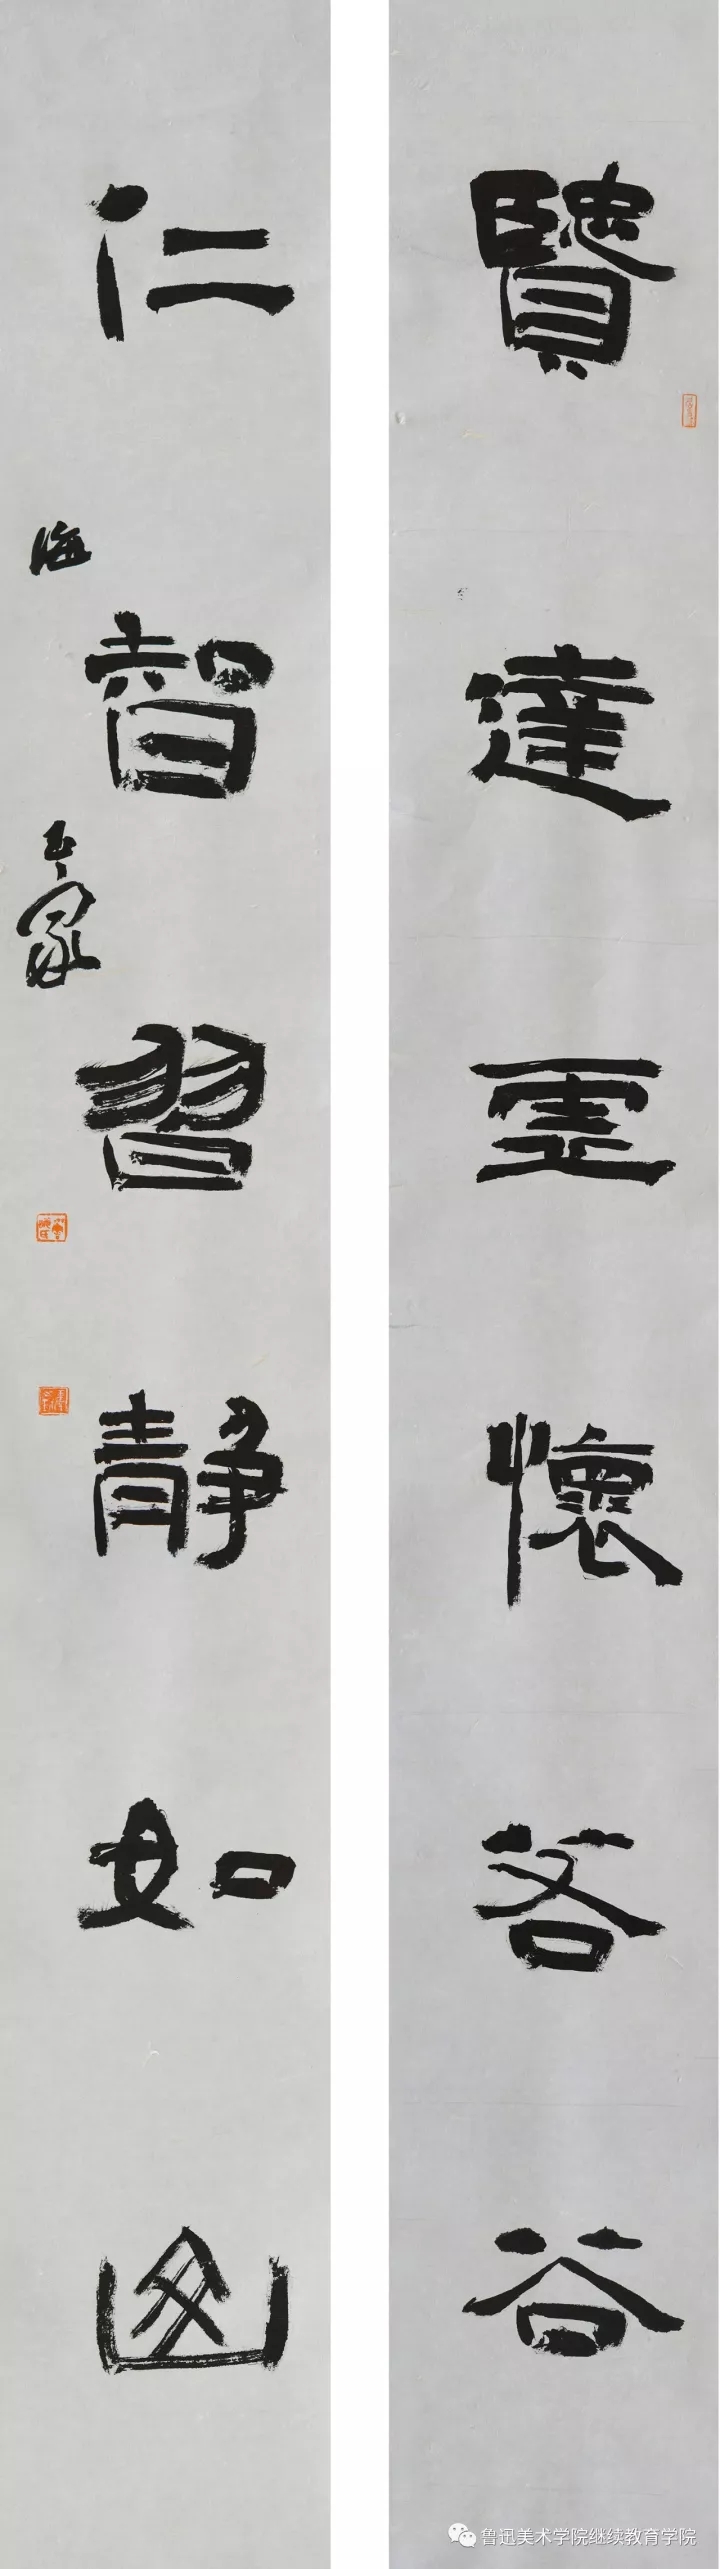 賢達虛懷若谷
仁智習静如山
海
鲁迅美术学院继续教育学院